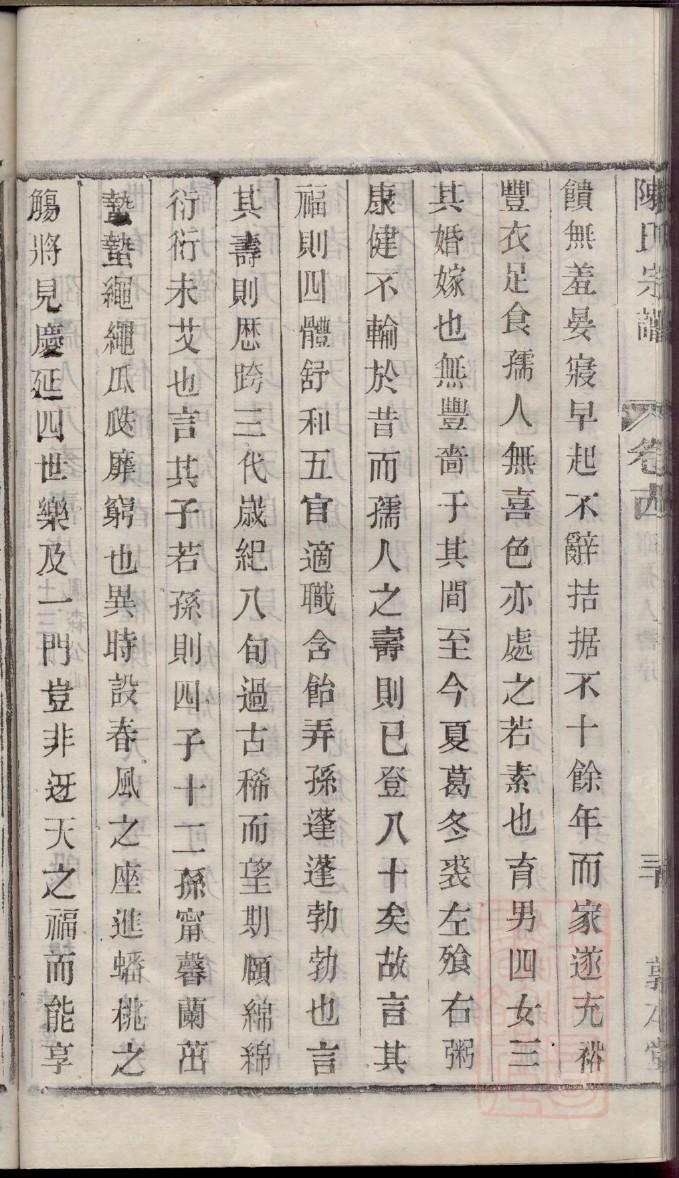 陳氏宗譜 卷四 三 敦本堂
饋無羞晏寢早起不辭拮据不十餘年而家遂充裕
豐衣足食孺人無喜色亦處之若素也育男四女三
其婚嫁也無豐嗇于其間至今夏葛冬裘左飱右粥
康健不輸於昔而孺人之壽則已登八十矣故言其
福則四體舒和五官適職含飴弄孫蓬蓬勃勃也言
其壽則歷跨三代歲紀八旬過古稀而望期頤綿綿
衍衍未艾也言其子若孫則四子十二孫甯馨蘭茁
蟄蟄繩繩瓜瓞靡窮也異時設春風之座進蟠桃之
觴將見慶延四世樂及一門豈非迓天之福而能享